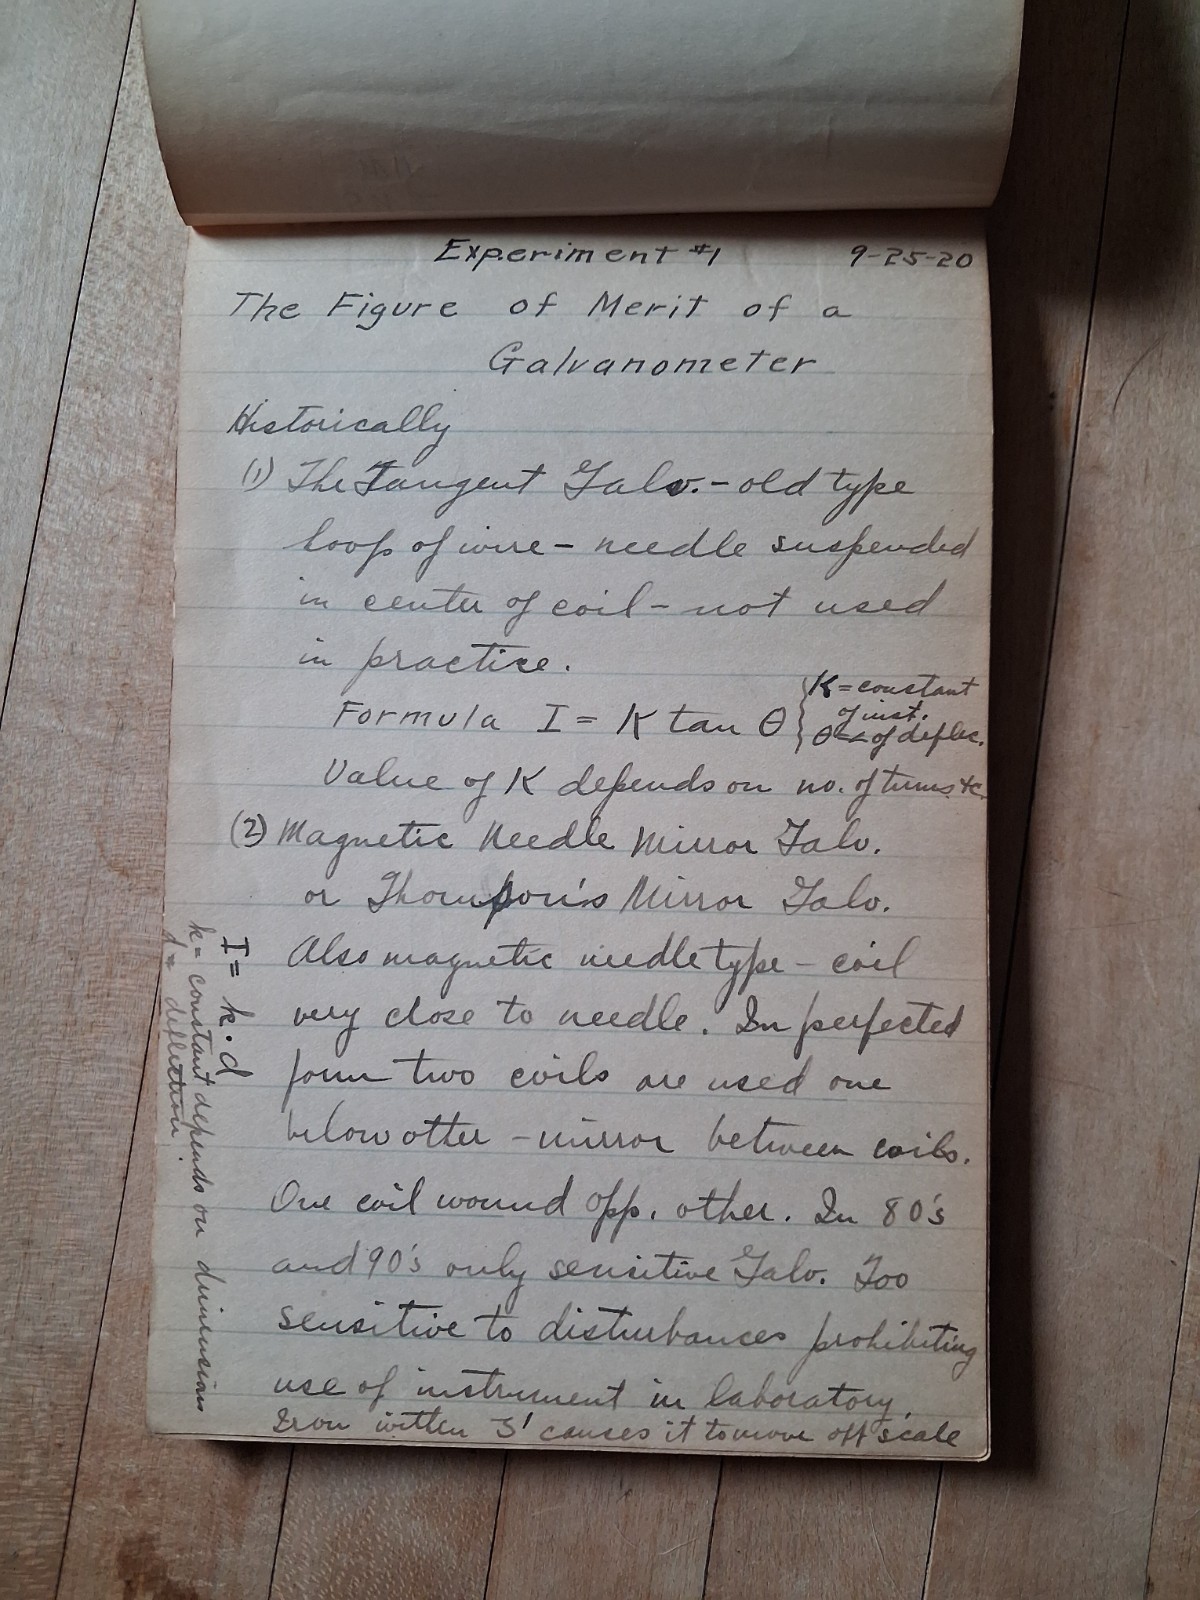 Experiment #1 9-25-20
The Figure of Merit of a
Galvanometer
Historically
(1) The Tangent Galv. - old type
loop of wire - needle suspended
in center of coil - not used
in practice.
Formula I = K tan θ { K = constant
of inst.
θ = ∠ of deflec.
Value of K depends on no. of turns &c.
(2) Magnetic Needle Mirror Galv.
or Thompson's Mirror Galv.
Also magnetic needle type - coil
very close to needle. In perfected
form two coils are used one
below other - mirror between coils.
One coil wound opp. other. In 80's
and 90's only sensitive Galv. Too
sensitive to disturbances prohibiting
use of instrument in laboratory.
Iron within 3' causes it to move off scale
I = k·d
k = constant depends on dimensions
d = deflection